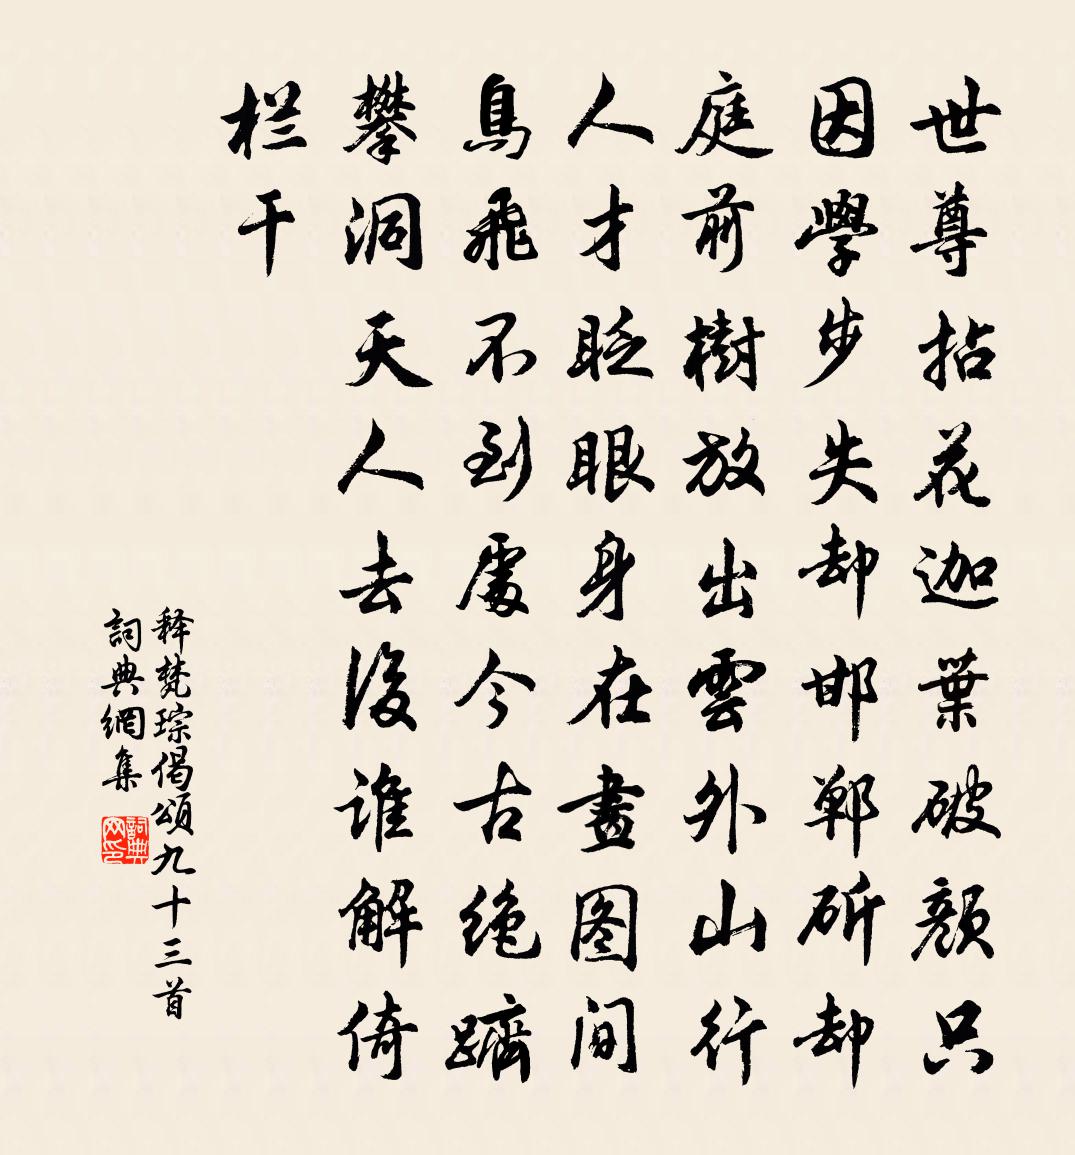 世尊拈花迦葉破顏只
因學步失却邯鄲斫却
庭前樹放出雲外山行
人才眨眼身在畫图間
鳥飛不到處今古絶躋
攀洞天人去後谁解倚
栏干
释梵琮偈頌九十三首
詞典網集
詞典
网印